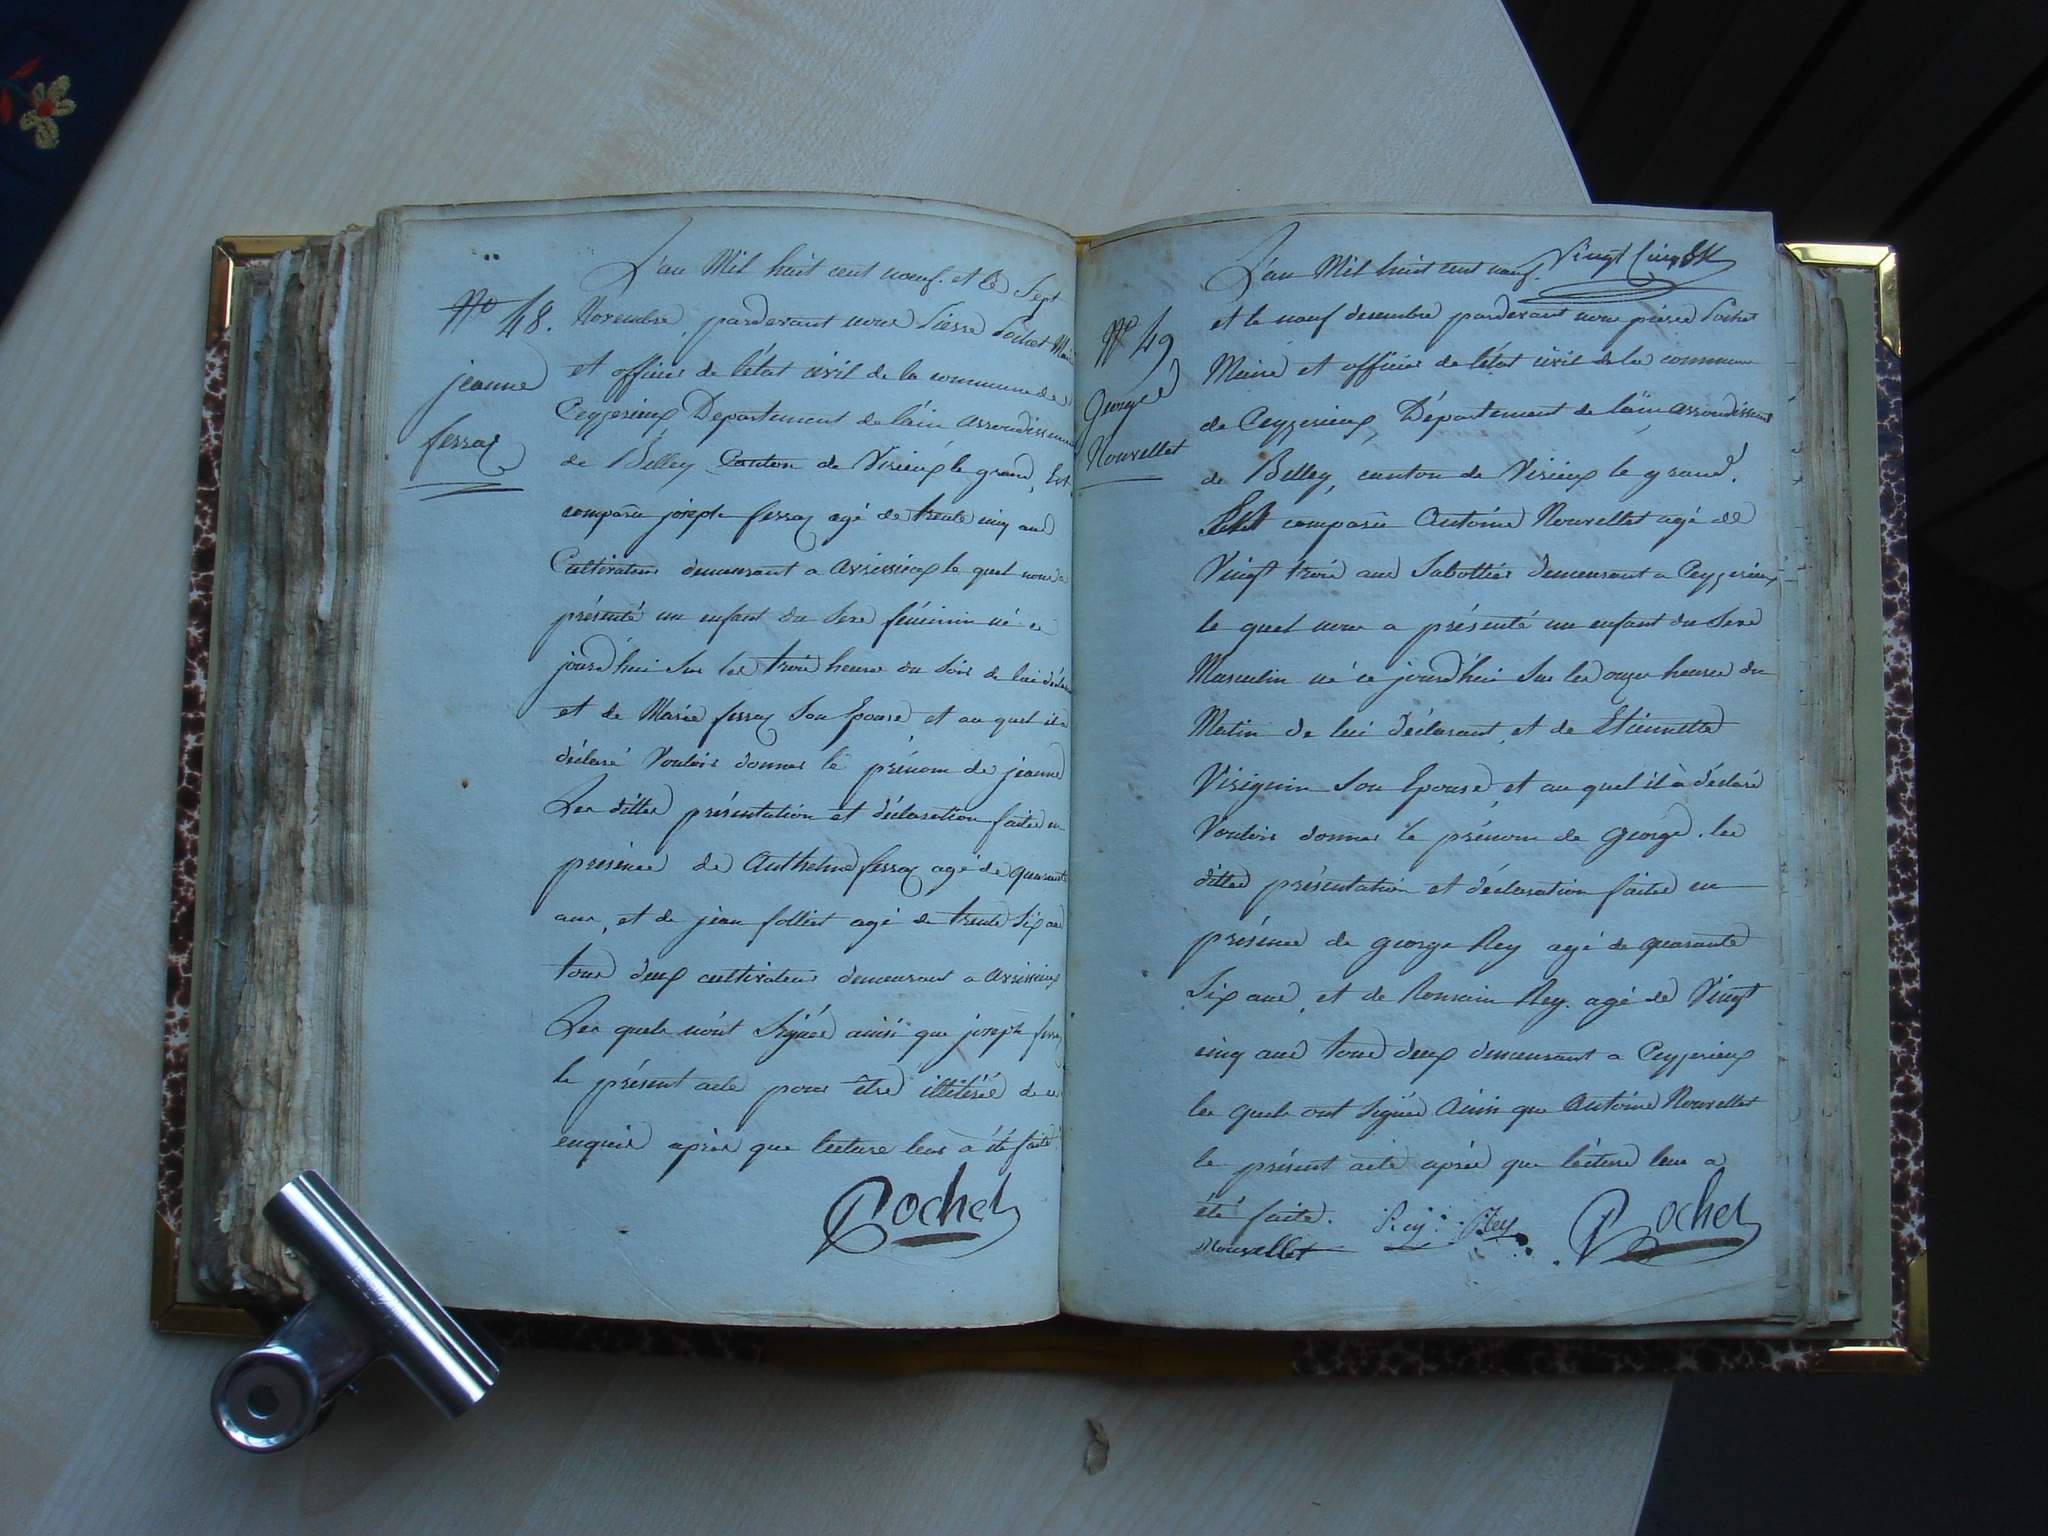 N° 48.
jeanne
ferraz
L'an Mil huit cent neuf. et le Sept
Novembre, pardevant nous Pierre Pochet Maire
et officier de l'état civil de la commune de
Ceyzerieux Département de l'ain arrondissement
de Belley Canton de Virieux le grand, Est
comparu joseph ferraz agé de trente cinq ans
Cultivateur demeurant a avrissieux le quel nous a
présenté un enfant du sexe féminin né ce
jourd'hui Sur les trois heures du soir de lui déclarant
et de Marie ferraz Son Epouse, et au quel il a
déclaré Vouloir donner le prénom de jeanne
Les dittes présentation et déclaration faites en
présence de Anthelme ferraz agé de quarante
ans, et de jean folliet agé de trente Six ans
tous deux cultivateurs demeurant a avrissieux
Les quels n'ont Signés ainsi que joseph ferraz
le présent acte pour être illitéré de ce
enquis après que lecture leur a été faite.
Pochet
Vingt Cinq
N° 49
George
Nouvellet
L'an Mil huit cent neuf.
et le neuf decembre pardevant nous pierre Pochet
Maire et officier de l'état civil de la commune
de Ceyzerieux, Département de l'ain arrondissement
de Belley, canton de Virieux le grand.
Est comparu Antoine Nouvellet agé de
Vingt trois ans Sabottier demeurant a Ceyzerieux
le quel nous a présenté un enfant du Sexe
Masculin né ce jourd'hui Sur les onze heures du
Matin de lui déclarant, et de Etiennette
Virignin Son Epouse, et au quel il à déclaré
Vouloir donner le prénom de George. les
dittes présentation et déclaration faites en
présence de george Rey agé de quarante
Six ans, et de Romain Rey. agé de Vingt
cinq ans tous deux demeurant a Ceyzerieux
les quels ont Signés Ainsi que Antoine Nouvellet
le présent acte après que lecture leur a
été faite. Rey. Rey Pochet
Nouvellet